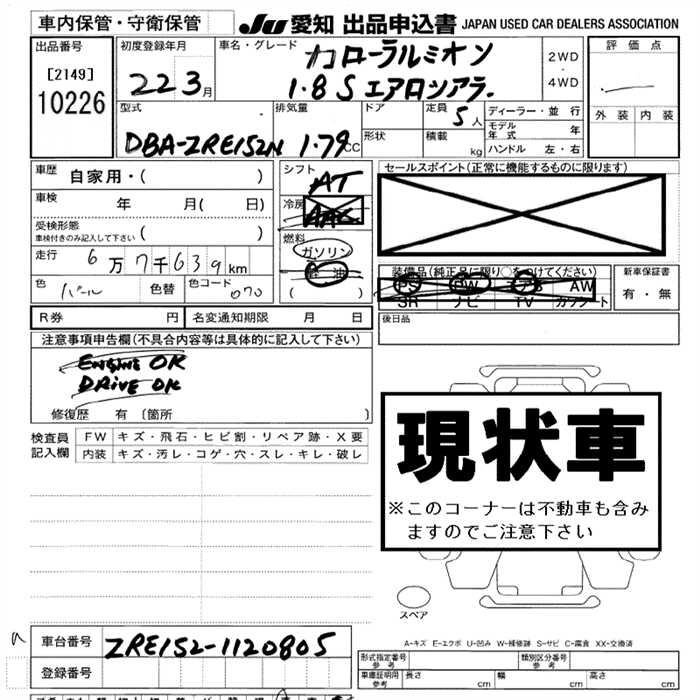 車内保管・守衛保管
JU 愛知 出品申込書 JAPAN USED CAR DEALERS ASSOCIATION
出品番号
[2149]
10226
初度登録年月
22 3月
車名・グレード
カローラルミオン
1.8 S エアロツアラー
2WD
・
4WD
評価点
外装 内装
型式
DBA-ZRE152N
排気量
1.79 CC
ドア
形状
定員 5人
積載 kg
ディーラー・並行
モデル年式 年
ハンドル 左・右
車歴 自家用・( )
車検 年 月( 日)
受検形態
車検付きのみ記入して下さい ( )
走行 6万7千639km
色 パール 色替 色コード 070
シフト AT
冷房 AAC
燃料 ガソリン
軽油
( )
セールスポイント(正常に機能するものに限ります)
装備品(純正品に限り○をつけてください)
PS PW エアB AW
SR ナビ TV カワシート
新車保証書
有・無
R券 円 名変通知期限 月 日
後日品
注意事項申告欄(不具合内容等は具体的に記入して下さい)
ENGINE OK
DRIVE OK
修復歴 有 [箇所 ]
検査員記入欄
FW キズ・飛石・ヒビ割・リペア跡・X要
内装 キズ・汚レ・コゲ・穴・スレ・キレ・破レ
現状車
※このコーナーは不動車も含み
ますのでご注意下さい
スペア
A-キズ E-エクボ U-凹み W-補修跡 S-サビ C-腐食 XX-交換済
車台番号 ZRE152-1120805
登録番号
形式指定番号 参考
類別区分番号 参考
車庫証明用 参考 長さ cm 幅 cm 高さ cm